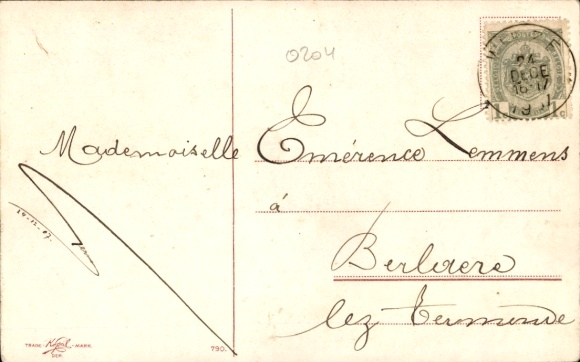 0204
24
DECE
16-17
1907
Mademoiselle Émérence Lemmens
à
Berlaere
lez Termonde
24-12-07
TRADE MARK.
DEP.
790.